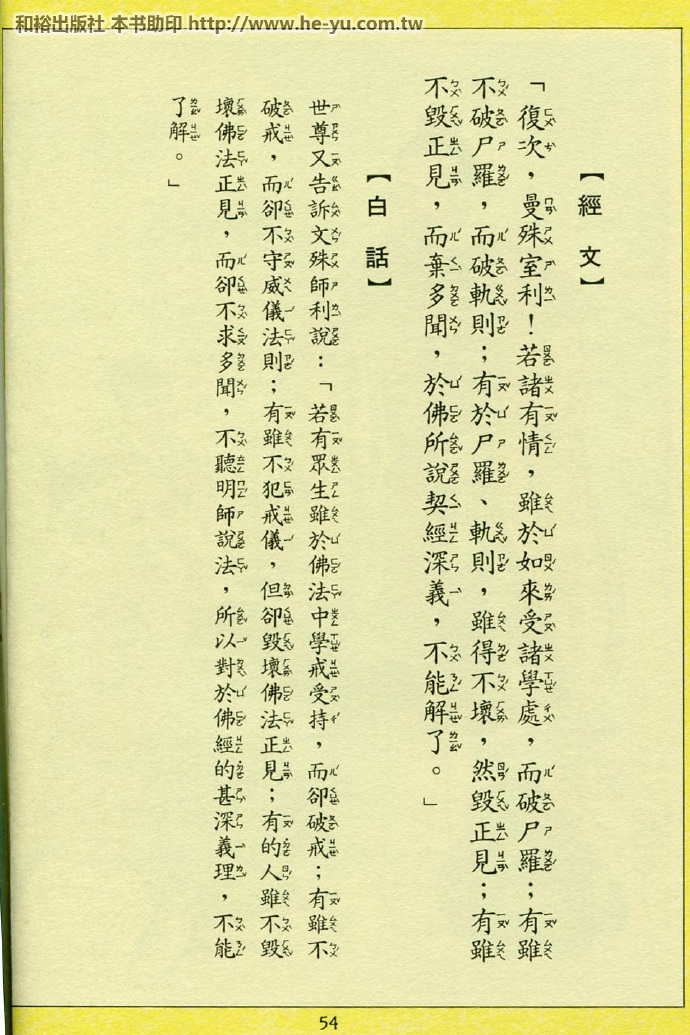 和裕出版社 本书助印 http://www.he-yu.com.tw
【經文】
「復次，曼殊室利！若諸有情，雖於如來受諸學處，而破尸羅；有雖
不破尸羅，而破軌則；有於尸羅、軌則，雖得不壞，然毀正見；有雖
不毀正見，而棄多聞，於佛所說契經深義，不能解了。」
【白話】
世尊又告訴文殊師利說：「若有眾生雖於佛法中學戒受持，而卻破戒；有雖不
破戒，而卻不守威儀法則；有雖不犯戒儀，但卻毀壞佛法正見；有的人雖不毀
壞佛法正見，而卻不求多聞，不聽明師說法，所以對於佛經的甚深義理，不能
了解。」
54